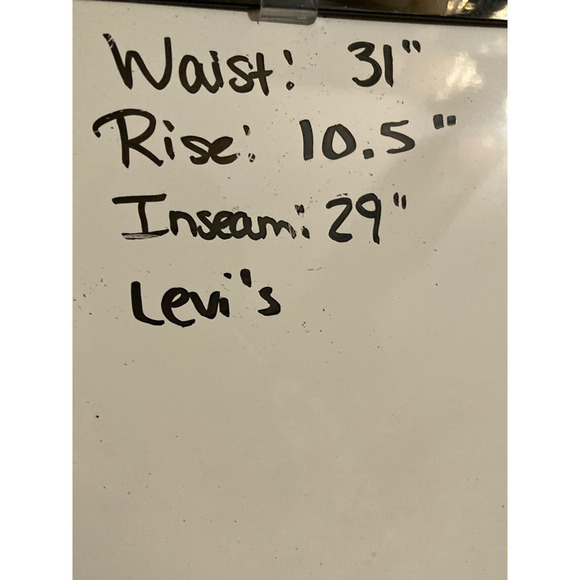 Waist: 31"
Rise: 10.5"
Inseam: 29"
Levi's